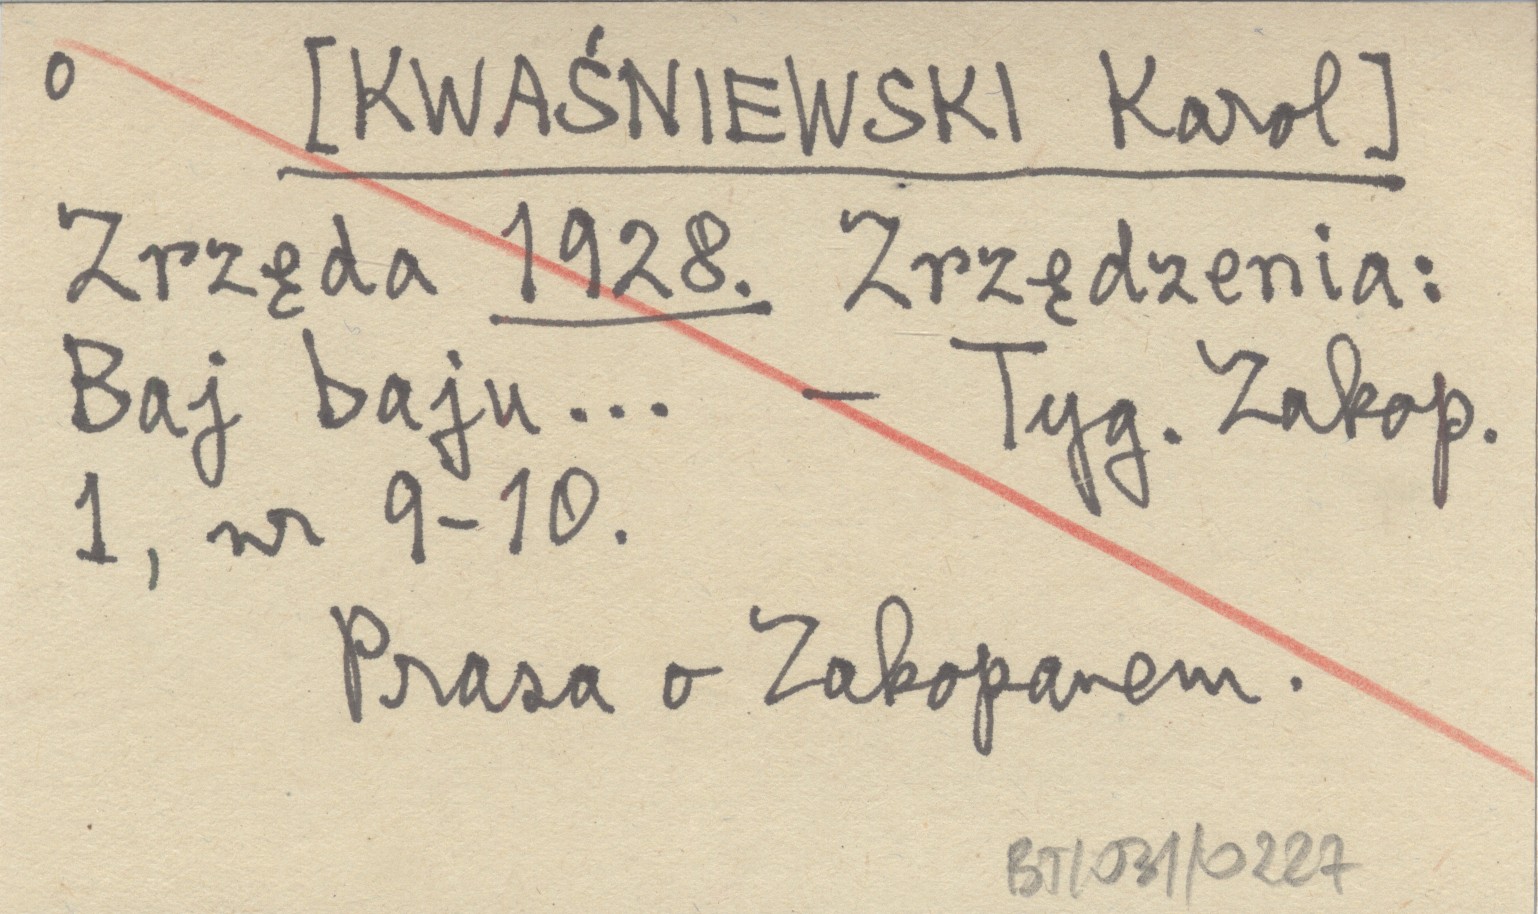 o [KWAŚNIEWSKI Karol]
Zrzęda 1928. Zrzędzenia:
Baj baju... — Tyg. Zakop.
1, nr 9-10.
Prasa o Zakopanem.
BT/031/0227